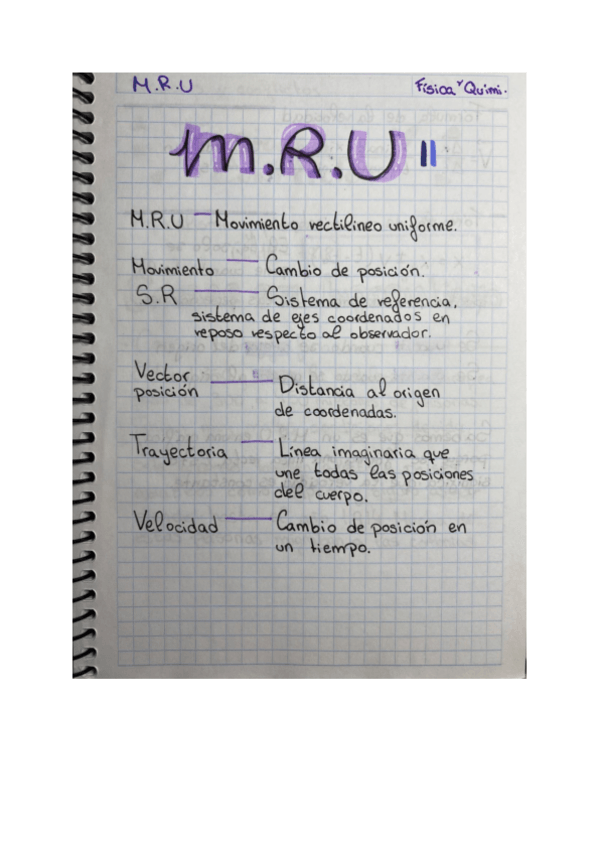 M.R.U
Física y Quimi.
M.R.U
M.R.U — Movimiento rectilineo uniforme.
Movimiento — Cambio de posición.
S.R — Sistema de referencia,
sistema de ejes coordenados en
reposo respecto al observador.
Vector
posición — Distancia al origen
de coordenadas.
Trayectoria — Línea imaginaria que
une todas las posiciones
del cuerpo.
Velocidad — Cambio de posición en
un tiempo.